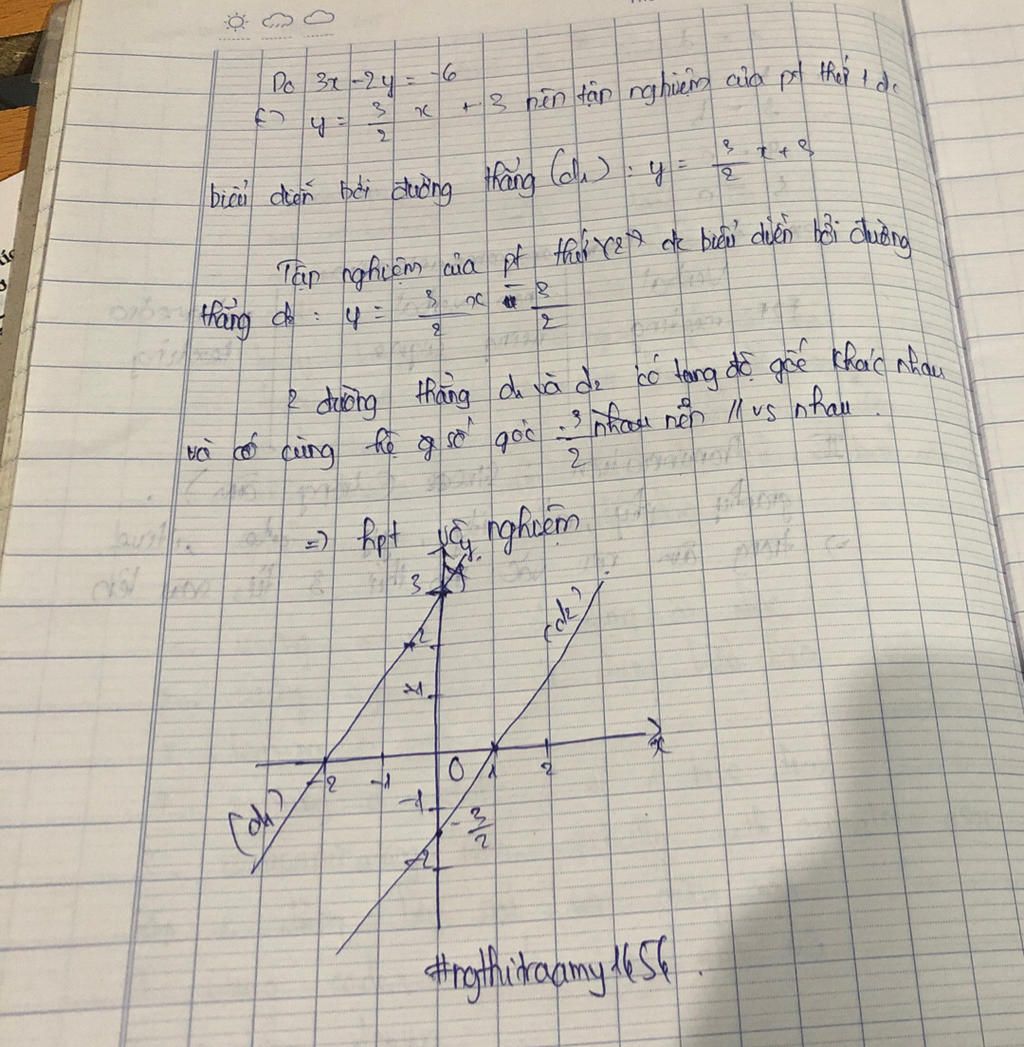 Do 3x - 2y = -6
<=> y = 3/2 x + 3 nên tập nghiệm của pt thứ 1 đc
biểu diễn bởi đường thẳng (d₁) : y = 3/2 x + 3
Tập nghiệm của pt thứ 2 đc biểu diễn bởi đường
thẳng d₂ : y = 3/2 x - 3/2
2 đường thẳng d₁ và d₂ có tung độ gốc khác nhau
và có cùng hệ số góc 3/2 nhau nên // vs nhau .
=> hpt vô nghiệm
y
3
2
1
(d₂)
x
-2 -1 O 1 2
-1
(d₁)
-3/2
-2
#ngthitraamy1656 .